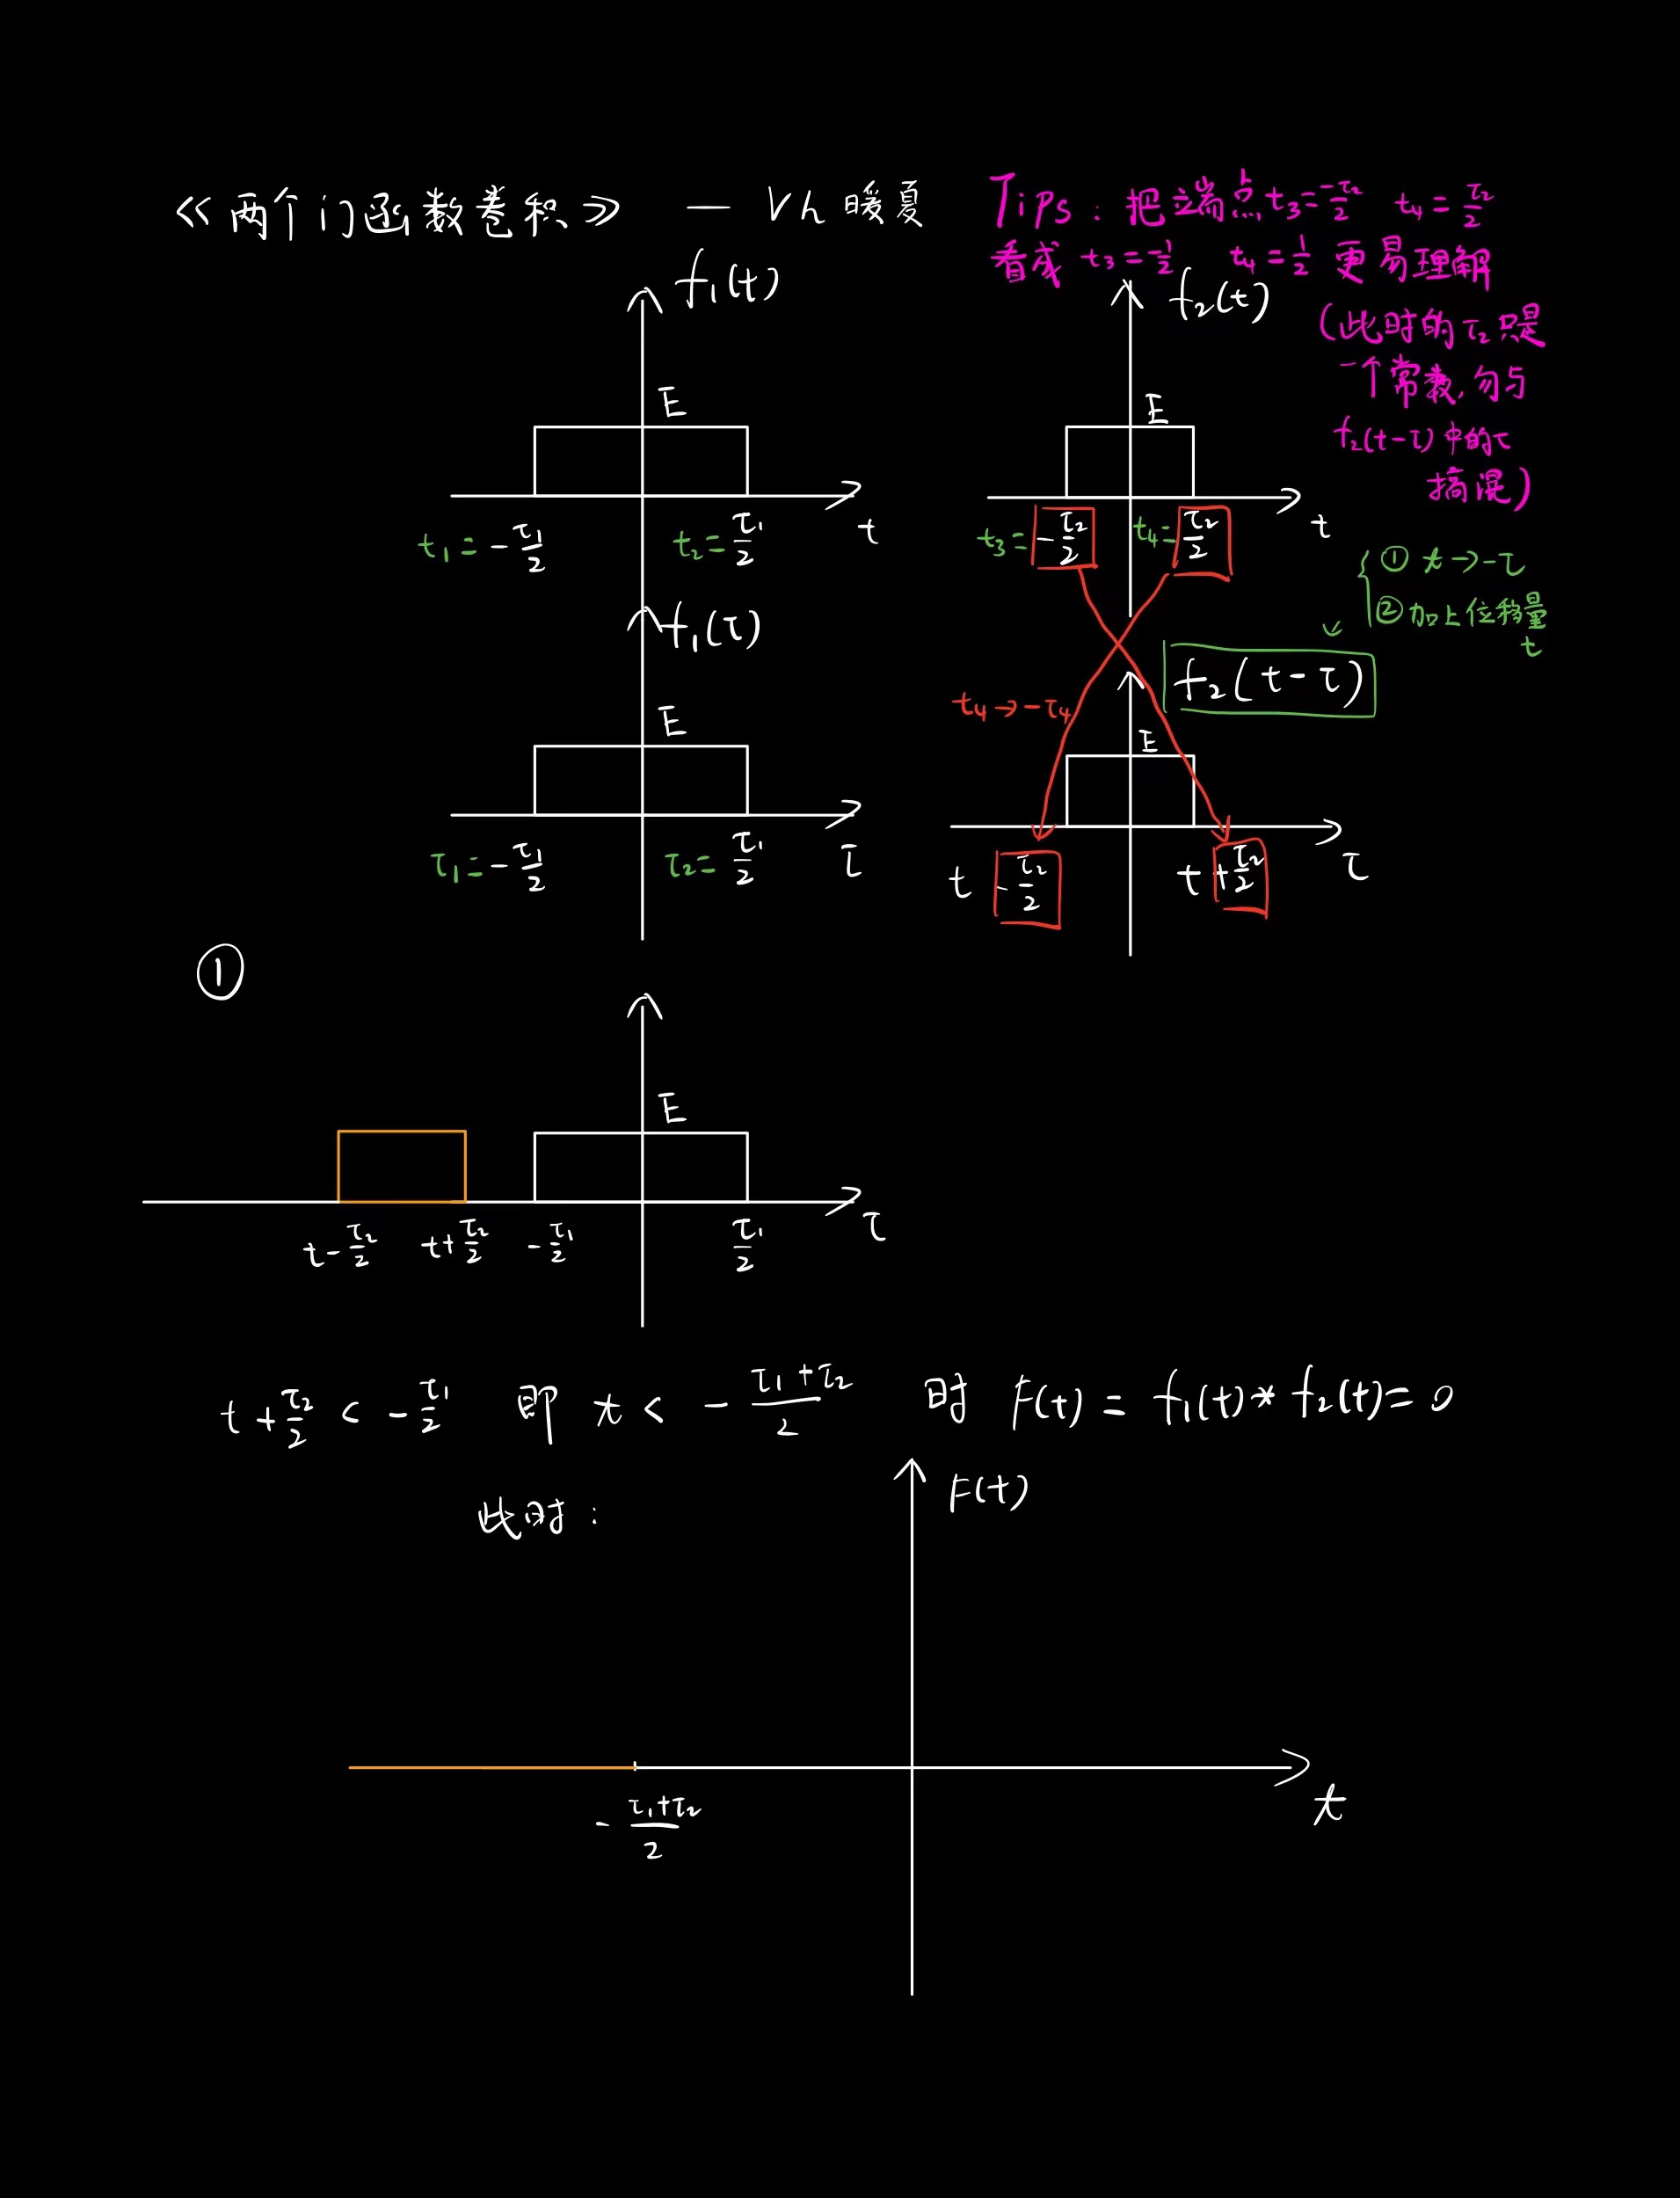 《两个门函数卷积》 — Vh暖夏
Tips：把端点t₃=-τ₂/2 t₄=τ₂/2
看成 t₃=-1/2 t₄=1/2 更易理解
(此时的τ₂只是
一个常数,勿与
f₂(t-τ)中的τ
搞混)
f₁(t)
E
t
t₁=-τ₁/2 t₂=τ₁/2
f₂(t)
E
t
t₃=-τ₂/2 t₄=τ₂/2
① t→-τ
②加上位移量
t
f₁(τ)
E
τ
τ₁=-τ₁/2 τ₂=τ₁/2
f₂(t-τ)
t₄→-τ₄
E
τ
t-τ₂/2 t+τ₂/2
①
E
τ
t-τ₂/2 t+τ₂/2 -τ₁/2 τ₁/2
t+τ₂/2<-τ₁/2 即 t<-(τ₁+τ₂)/2 时 F(t)=f₁(t)*f₂(t)=0
此时：
F(t)
t
-(τ₁+τ₂)/2